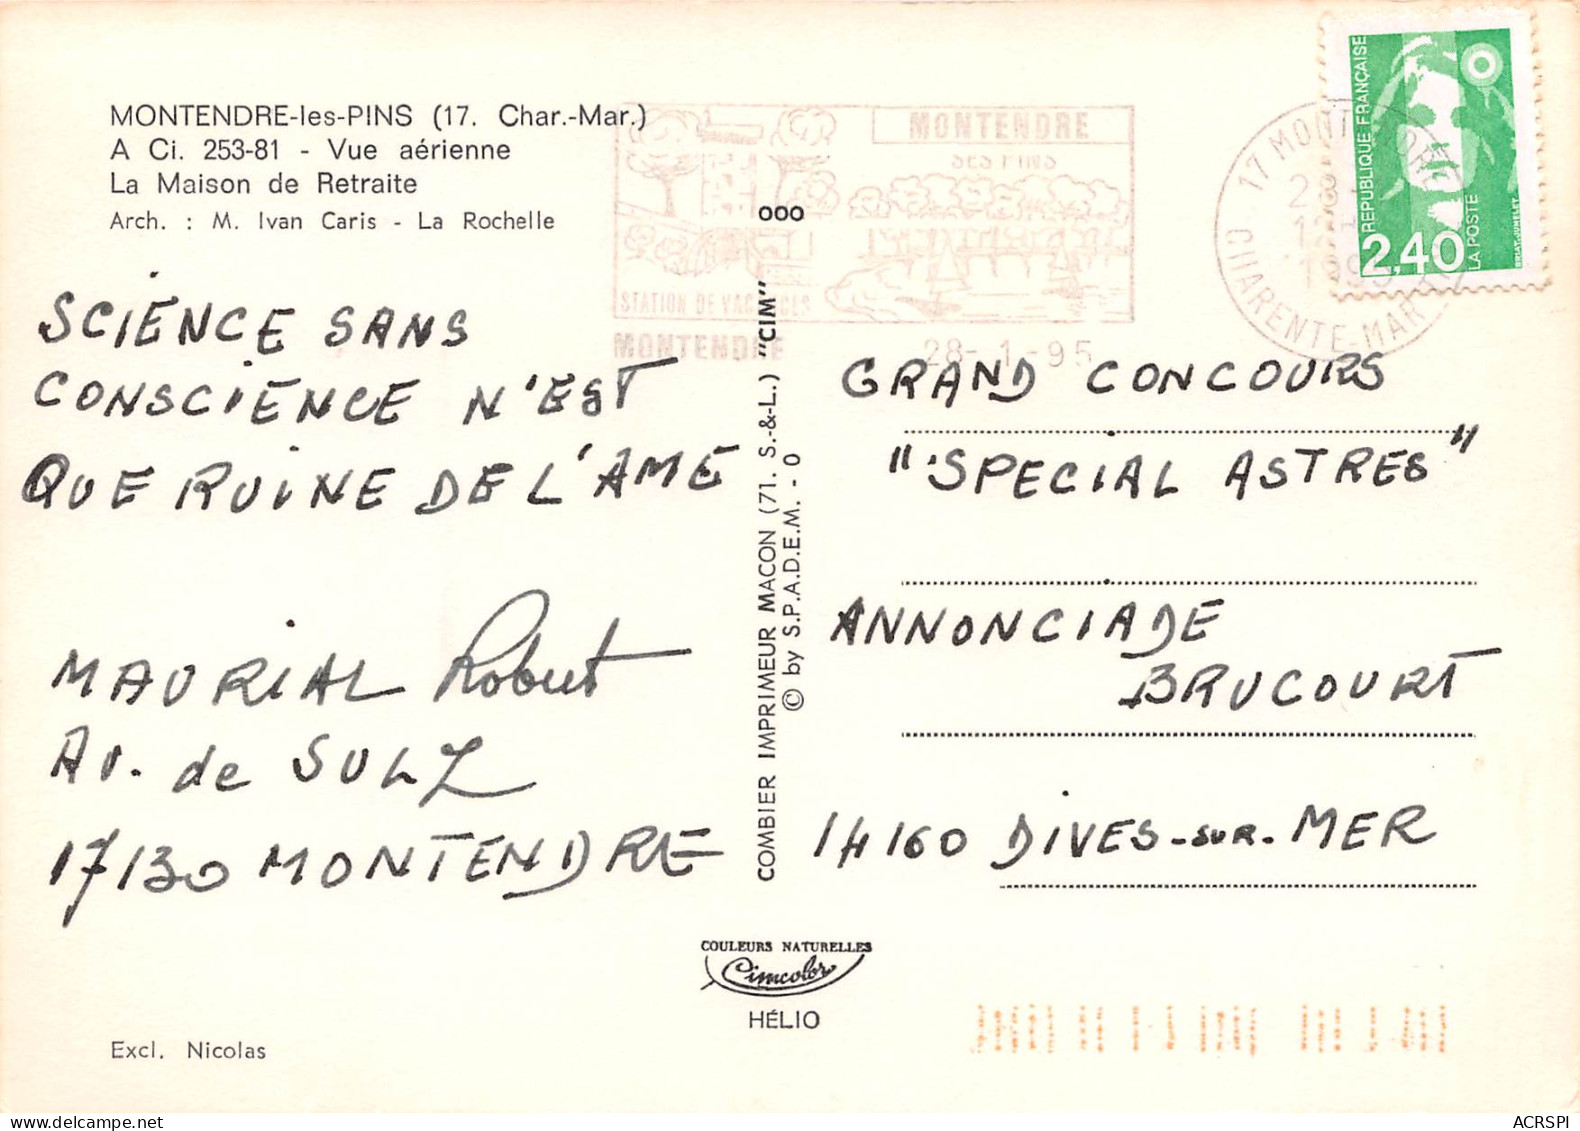 MONTENDRE-les-PINS (17. Char.-Mar.)
A Ci. 253-81 - Vue aérienne
La Maison de Retraite
Arch. : M. Ivan Caris - La Rochelle
SCIENCE SANS
CONSCIENCE N'EST
QUE RUINE DE L'AME
MAURIAL Robert
AV. de SULZ
17130 MONTENDRE
Excl. Nicolas
MONTENDRE
SES PINS
STATION DE VACANCES
MONTENDRE
28-1-95
000
COMBIER IMPRIMEUR MACON (71. S.-&-L.) "CIM"
© by S.P.A.D.E.M. - 0
COULEURS NATURELLES
Cimcolor
HÉLIO
17 MONTENDRE
CHARENTE-MARTME
REPUBLIQUE FRANÇAISE
2,40
LA POSTE
BRIAT-JUMELET
GRAND CONCOURS
"SPECIAL ASTRES"
ANNONCIADE
BRUCOURT
14160 DIVES-SUR-MER
ACRSPI